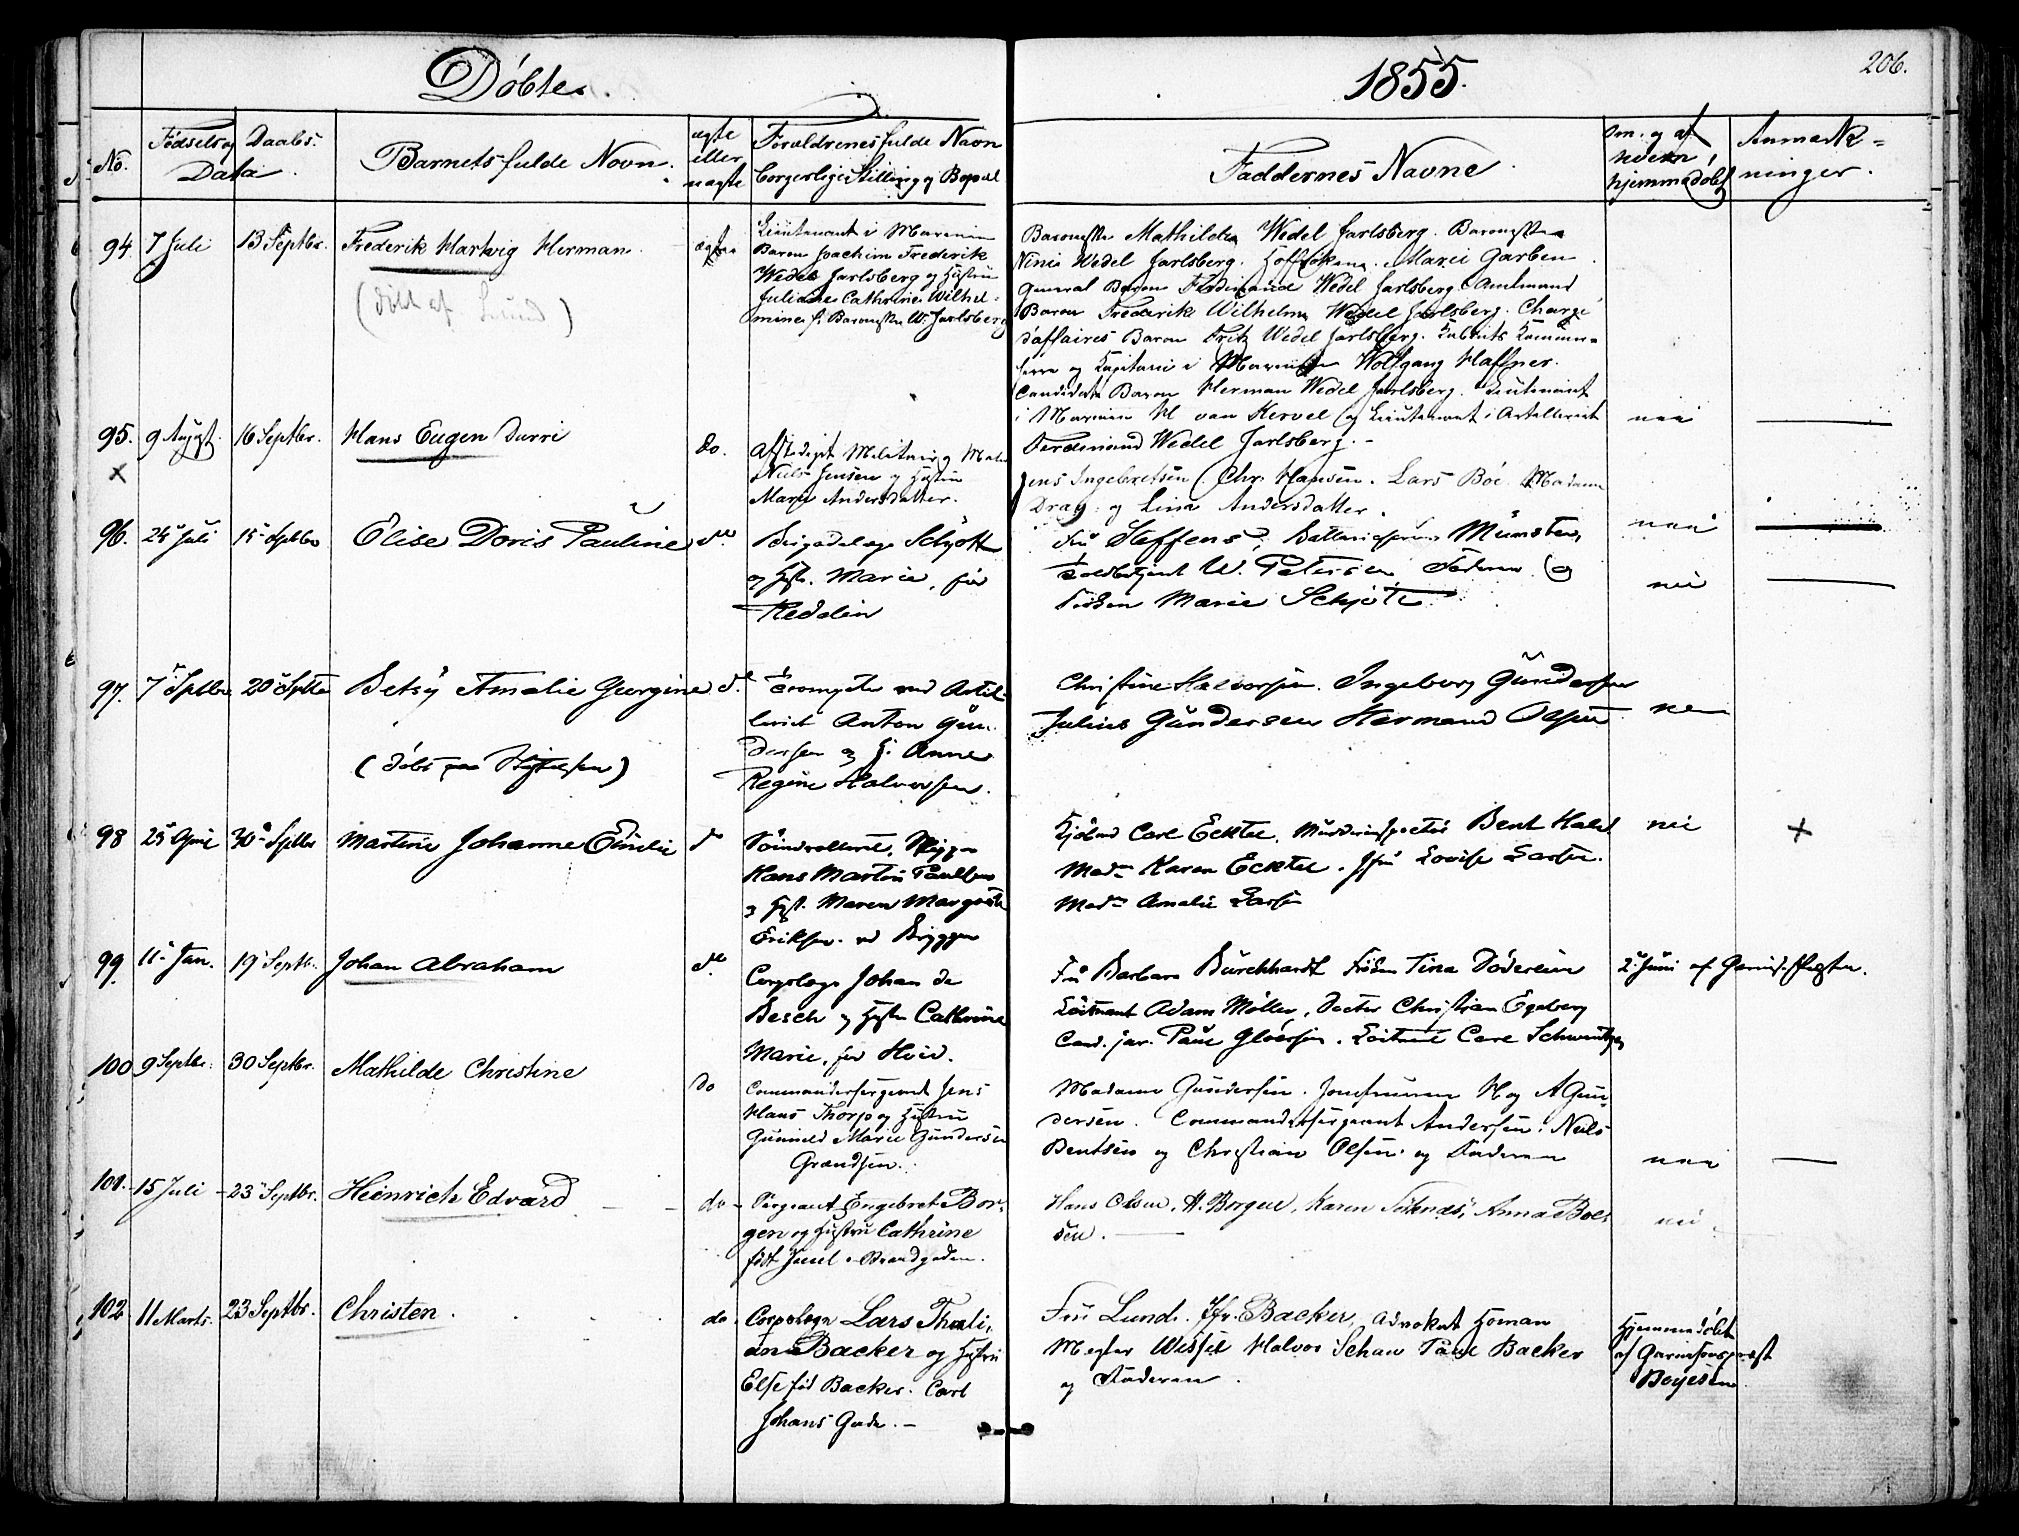 Döbte.
1855.
206.
No.
Fødsels og Daabs-
Data.
Barnets fulde Navn.
ægte
eller
uægte
Forældrenes fulde Navn
borgerlige Stilling og Bopæl
Faddernes Navne.
Om og af
hvem
hjemmedøbt
Anmærk-
ninger.
94 7 Juli 13 Septbr. Frederik Hartvig Herman ægte
(døbt af Lund)
Lieutenant i Marinen
Baron Joachim Frederik
Wedel Jarlsberg og Hustru
Juliane Cathrine Wilhel-
mine f. Baronesse W. Jarlsberg
Baronesse Mathilde Wedel Jarlsberg. Baronesse
Nini Wedel Jarlsberg. Marie Garben
General Baron Ferdinand Wedel Jarlsberg. Amtmand
Baron Frederik Wilhelm Wedel Jarlsberg. Charge
d'affaires Baron Fritz Wedel Jarlsberg. Kabinets Kammer-
herre og Kapitain i Marinen Wolfgang Haffner.
Candidat Baron Herman Wedel Jarlsberg. Lieutenant
i Marinen H van Kervel og Lieutenant i Artilleriet
Ferdinand Wedel Jarlsberg.
nei
95. 9 August. 16 Septbr. Hans Eugen Durri do.
Afskediget Militair og Maler
Niels Jensen og Hustru
Marie Andersdatter.
Jens Ingebretsen Chr. Hansen. Lars Boe Madam
Drag og Lina Andersdatter.
nei
96. 24 Juli 15 Septbr Elise Doris Pauline do
Brigadelæge Schjøtt
og Hst. Marie, født
Reddelin
Fru Steffens, Münster,
Toldbetjent W. Petersen, Faderen og
Frøken Marie Schjøtt
nei
97. 7 Septbr 20 Septbr Betsy Amalie Georgine do.
(døbt paa )
ved Artil-
leriet Anton Gun-
dersen og H. Anne
Regine Halvorsen.
Christine Halvorsen. Ingeborg Gundersen
Julius Gundersen Hermand Olsen
nei
98 25 April 30 Septbr Martine Johanne Emilie do
Hans Martin Paulsen
og Hst. Maren Margrethe
Eriksen. ved Bryggen
Carl Ecktel, Bent
Mad. Karen Ecktel. Jfr Lovise Larsen.
Mad. Amalie Larsen
nei
99. 11 Jan. 19 Septbr. Johan Abraham do.
Corpslæge Johan de
Besch og Hustru Cathrine
Marie, født Hvid.
Fru Barbara Burchhardt Frøken Tina Döderlein
Løitnant Adam Møller, Doctor Christian Egeberg
Cand. jur. Paul Gløersen. Løitnant Carl
2 Juni af Garnis. Præsten.
100 9 Septbr. 30 Septbr. Mathilde Christine do
Commandersergeant Jens
Hans Thorp og Hustru
Gunnild Marie Gundersen
Grændsen.
Madame Gundersen. Jomfruerne H og A Gun-
dersen. Commandersergeant Andersen. Niels
Bentsen og Christian Olsen og Faderen
nei
101. 15 Juli 23 Septbr. Heinrich Edvard do
Sergeant Engebret Bor-
gen og Hustru Cathrine
født Juul. Brandgaden.
Hans Olsen, A. Borgen, Karen , Anna Bol-
sen.
nei
102 11 Marts. 23 Septbr. Christen. do
Corpslæge Lars Thali-
an Backer og Hustru
Else født Backer. Carl
Johans Gade.
Fru Lund. Jfr. Backer, Advokat Homan
Megler Wessel Halvor Schou Paul Backer
og Faderen.
Hjemmedøbt
af Garnisonspræst
Boyesen